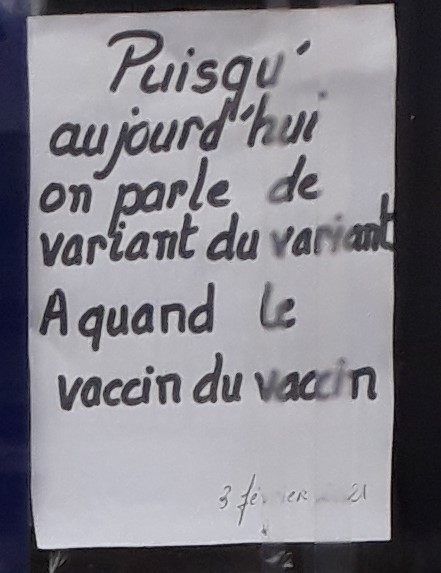 Puisqu'
aujourd'hui
on parle de
variant du variant
A quand le
vaccin du vaccin
3 février 21